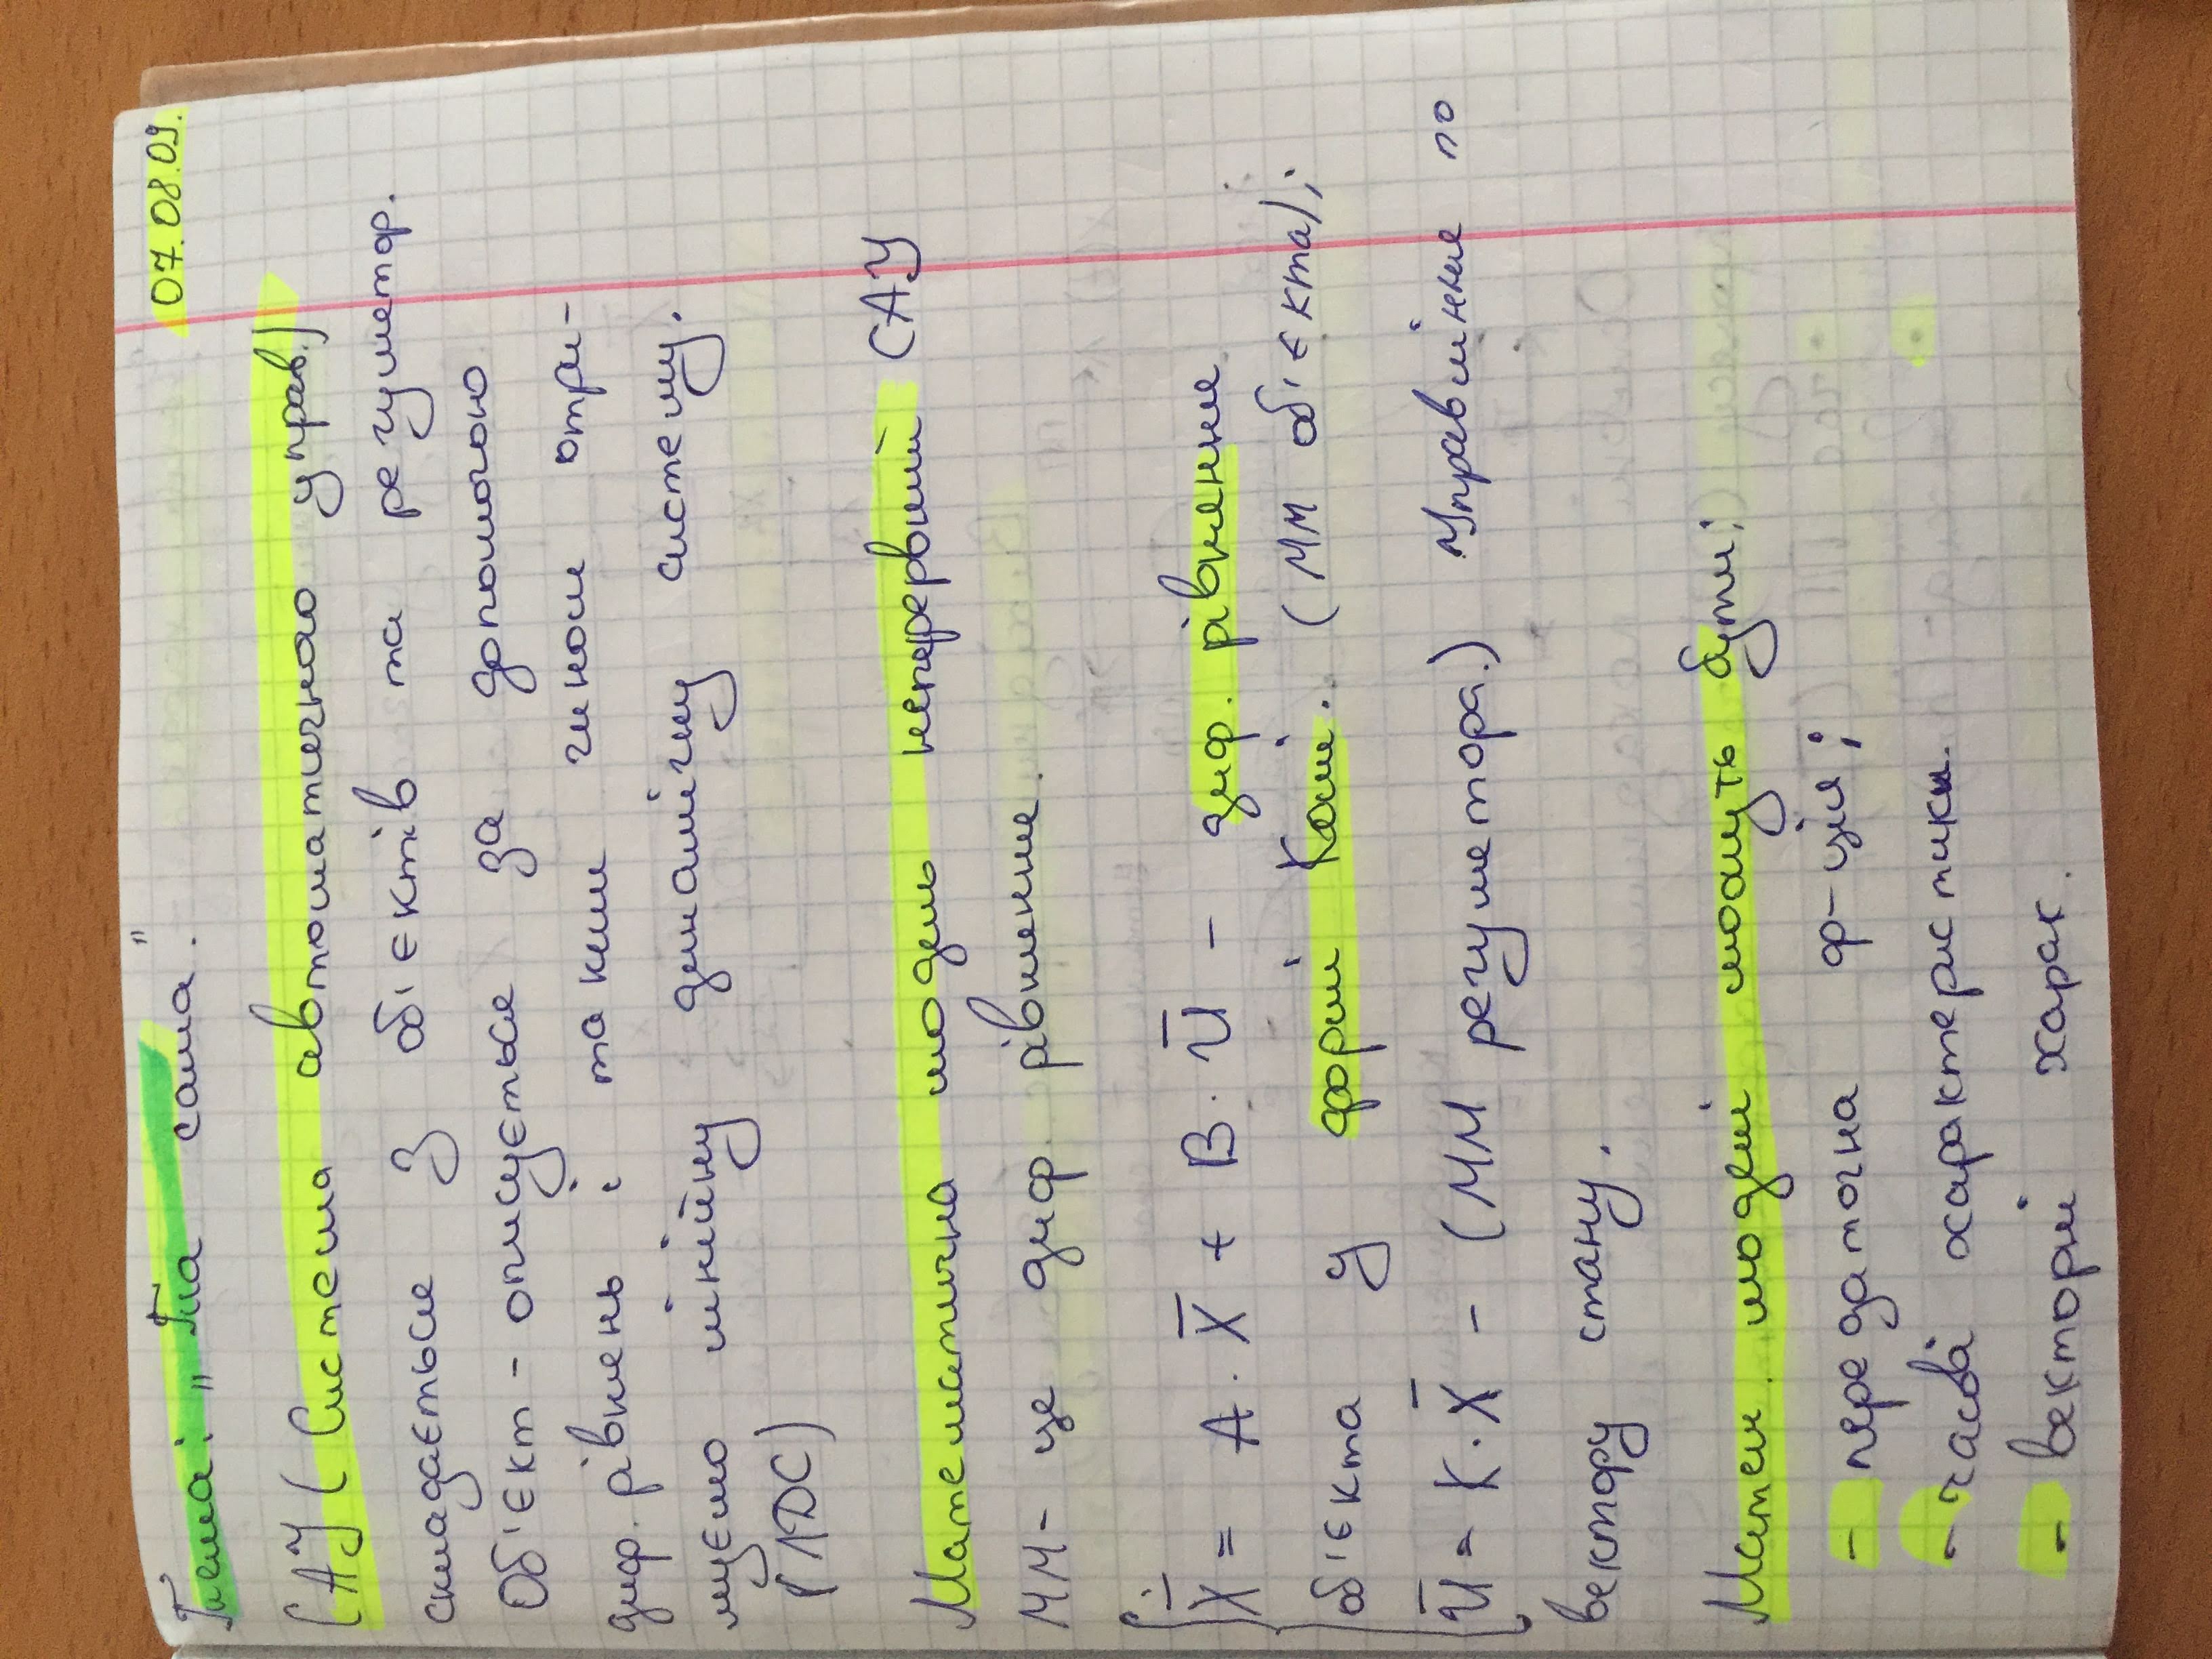 Тема: „Та сама."
07.08.09.
САУ (Система автоматичного управ.)
складається з об'єктів та регулятор.
Об'єкт - описується за допомогою
диф. рівнянь і таким чином отри-
муємо лінійну динамічну систему.
(ЛДС)
Математична модель неперервний САУ
ММ- це диф. рівняння.
Ẋ̄ = A · X̄ + B · Ū - диф. рівняння
об'єкта у формі Коші. (ММ об'єкта);
Ū = K · X̄ - (ММ регулятора.) Управління по
вектору стану.
Матем. моделі можуть бути:
- передаточна ф-ція;
- часові характеристики.
- векторні харак.